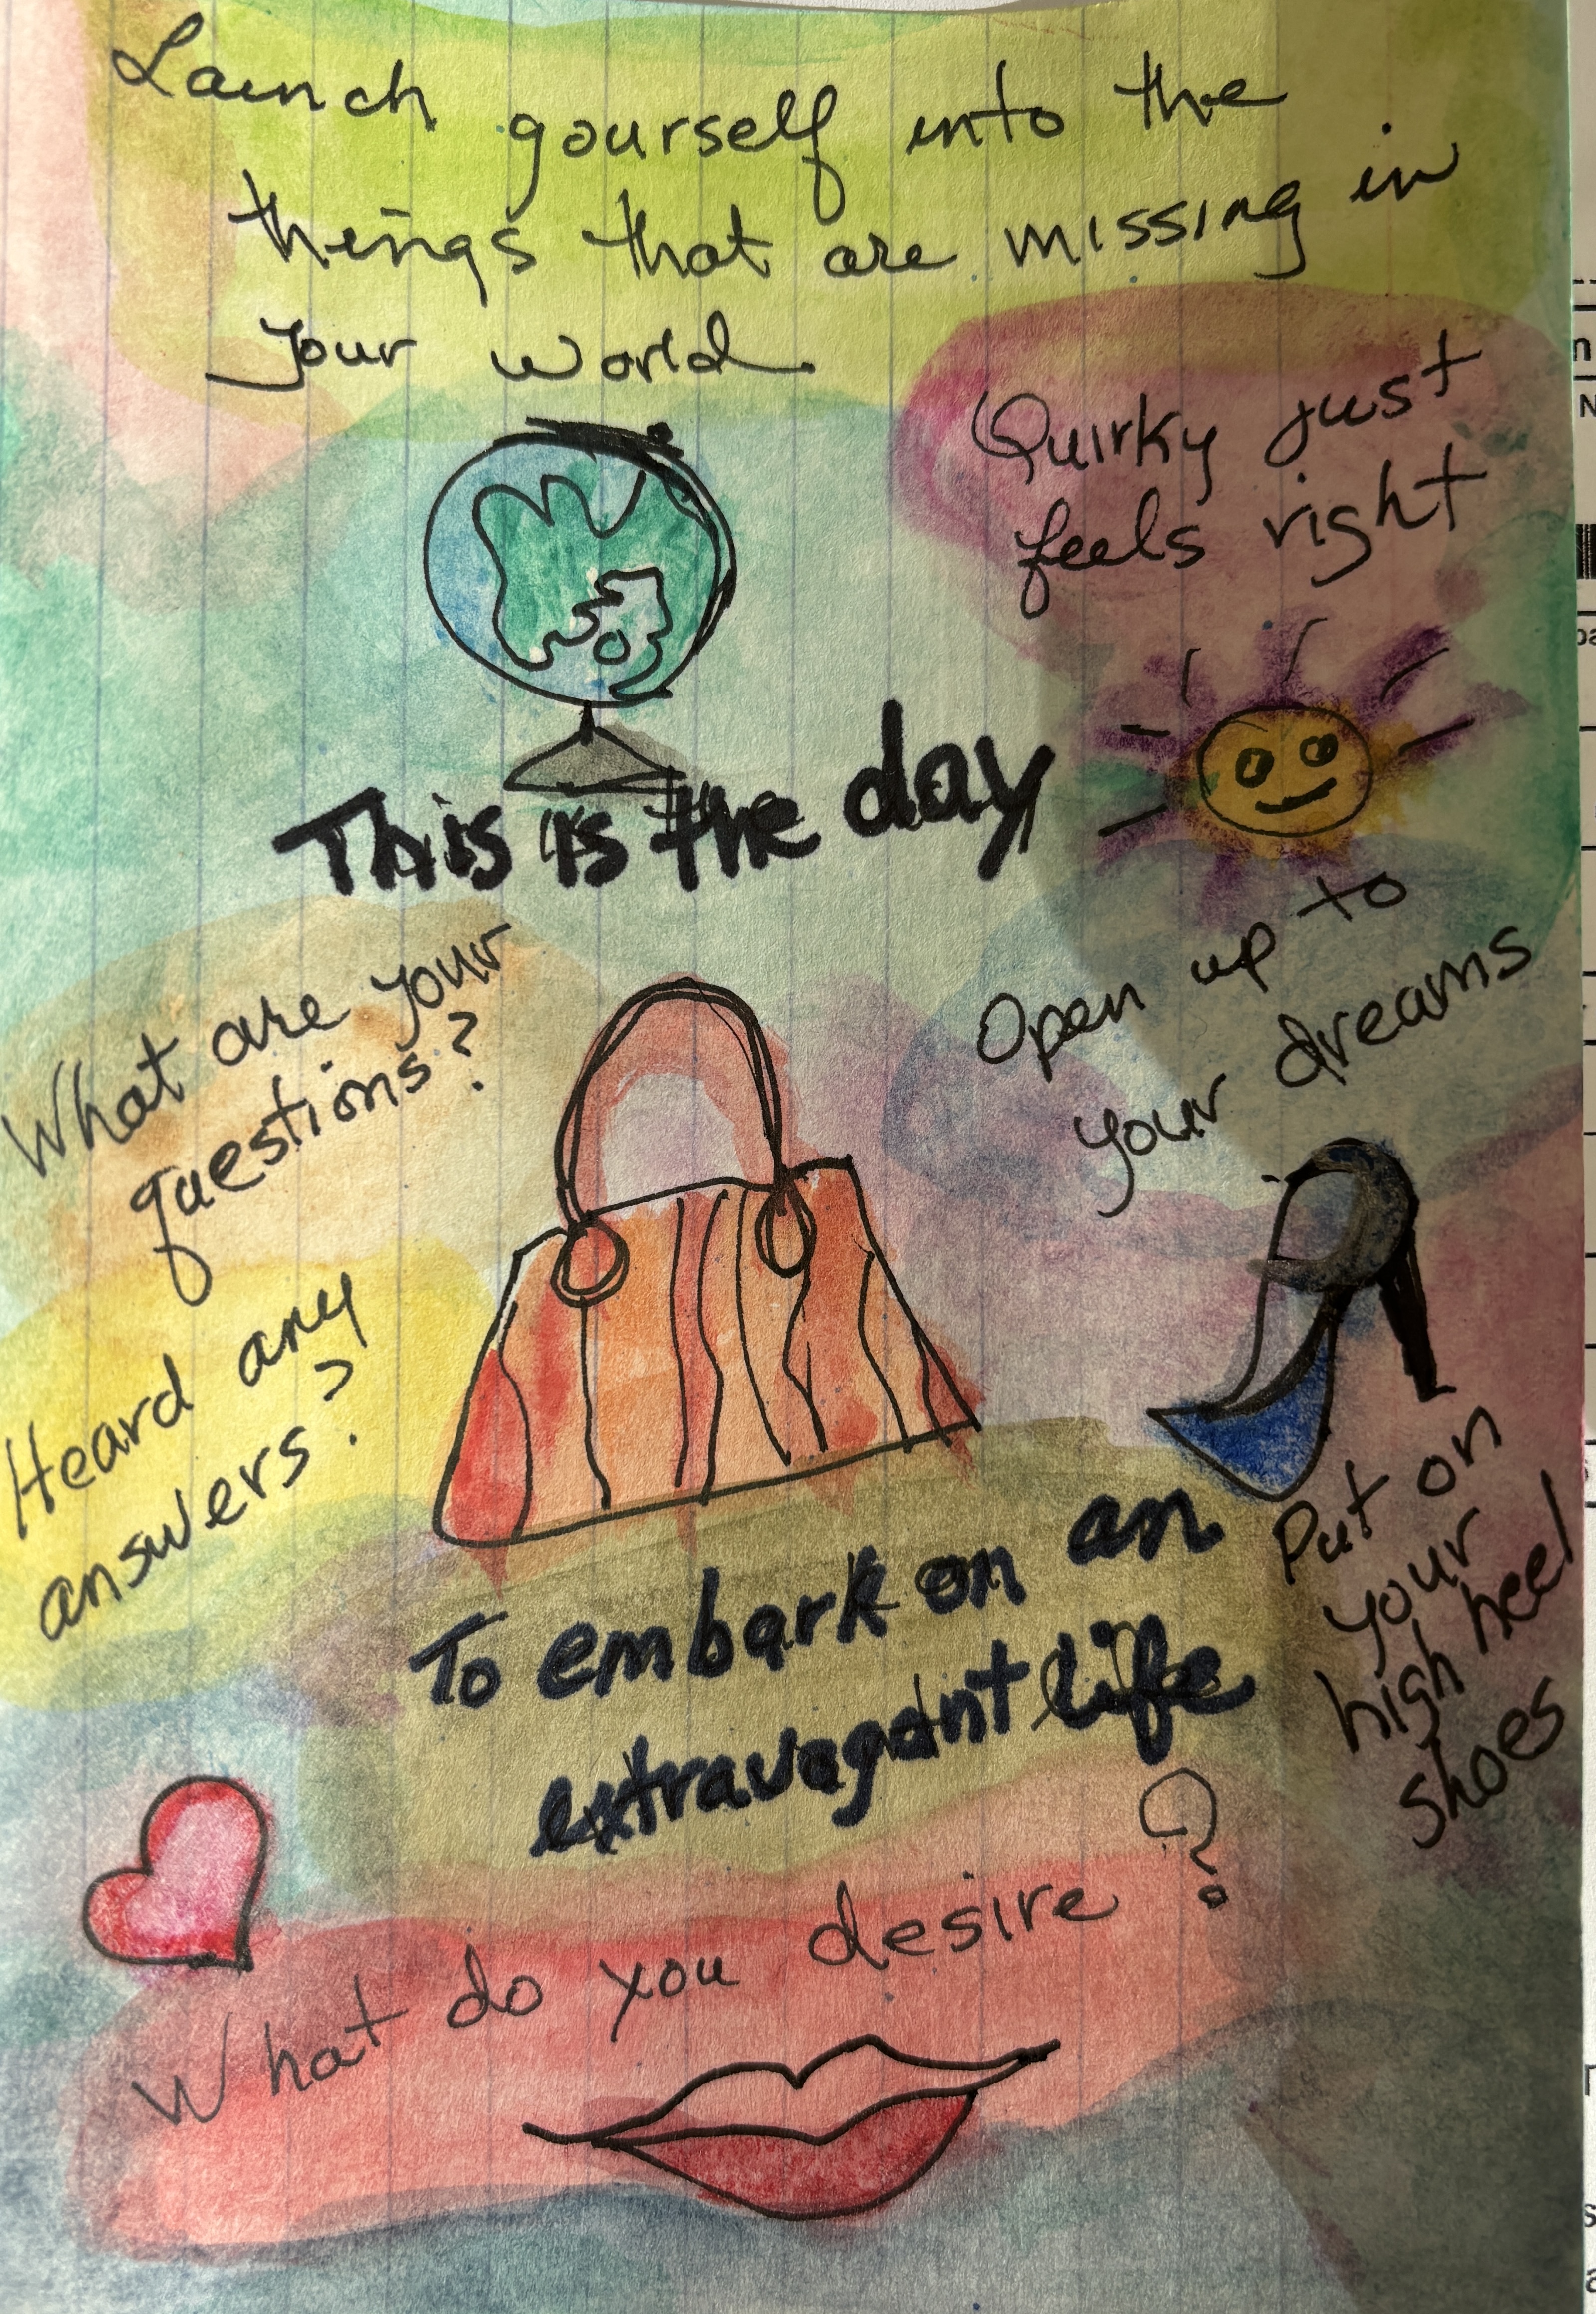 Launch yourself into the
things that are missing in
your world
Quirky just
feels right
This is the day
What are your
questions?
Open up to
your dreams
Heard any
answers?
Put on
your
high heel
shoes
To embark on an
extravagant life
What do you desire?